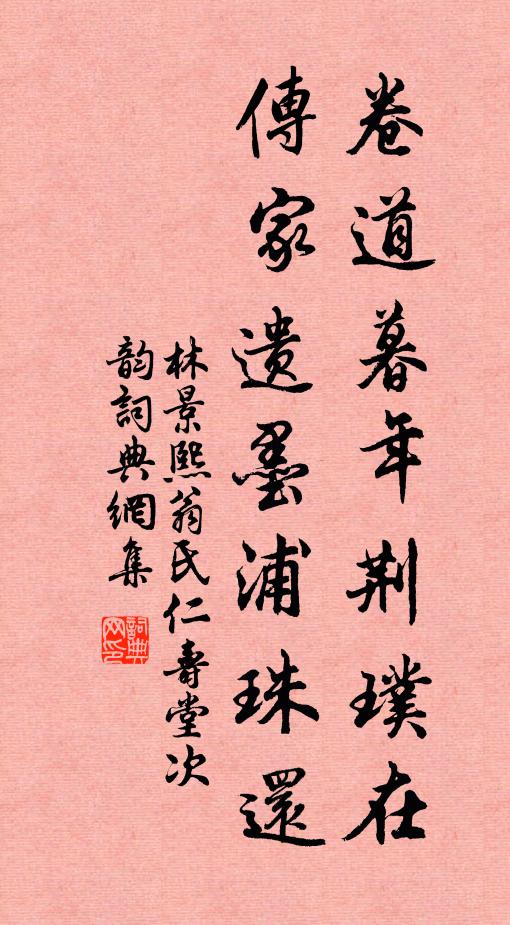 卷道暮年荆璞在
傳家遺墨浦珠還
林景熙翁氏仁壽堂次
韵詞典網集
詞典网印